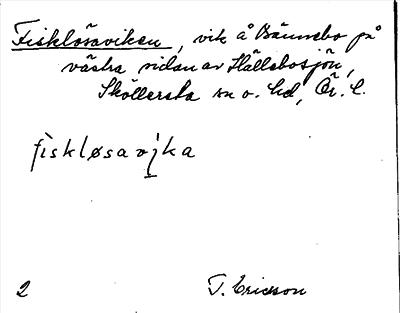 Fisklösaviken, vik å Bännebo på
västra sidan av Hällebosjön,
Sköllersta sn o. hd, Ör. l.
fiskløsavika
2 T. Ericsson